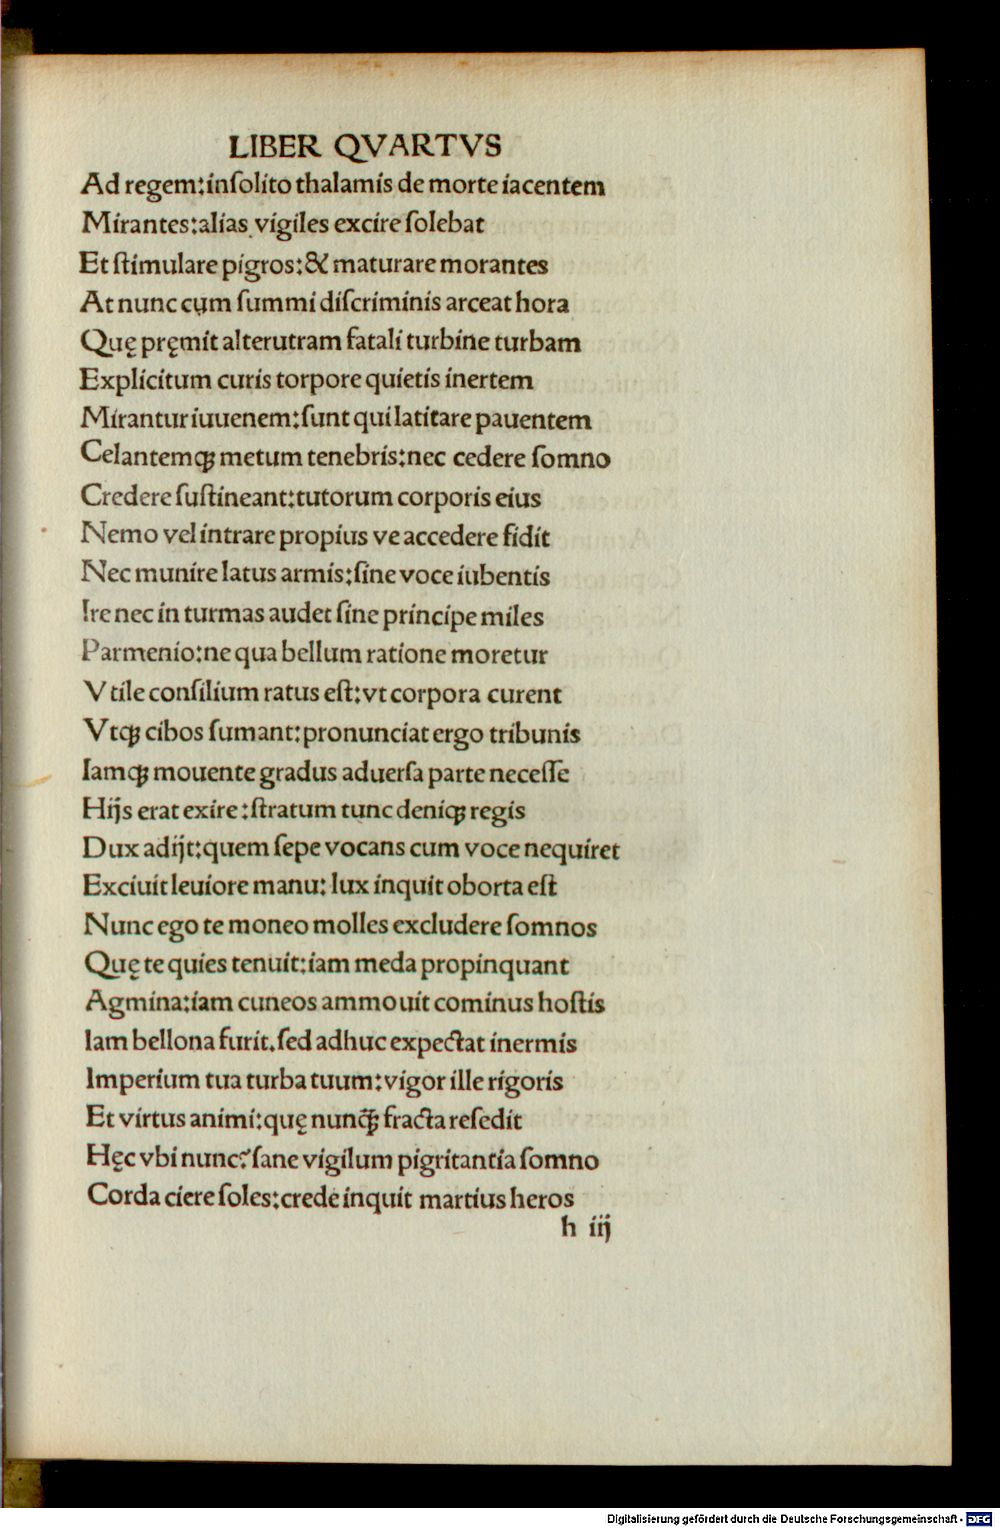 LIBER QVARTVS
Ad regem:inſolito thalamis de morte iacentem
Mirantes:alias vigiles excire ſolebat
Et ſtimulare pigros:& maturare morantes
At nunc cum ſummi diſcriminis arceat hora
Quę pręmit alterutram fatali turbine turbam
Explicitum curis torpore quietis inertem
Mirantur iuuenem:ſunt qui latitare pauentem
Celantemqꝫ metum tenebris:nec cedere ſomno
Credere ſuſtineant:tutorum corporis eius
Nemo vel intrare propius ve accedere fidit
Nec munire latus armis:ſine voce iubentis
Ire nec in turmas audet ſine principe miles
Parmenio:ne qua bellum ratione moretur
Vtile conſilium ratus eſt:vt corpora curent
Vtqꝫ cibos ſumant:pronunciat ergo tribunis
Iamqꝫ mouente gradus aduerſa parte neceſſe
Hijs erat exire:ſtratum tunc deniqꝫ regis
Dux adijt:quem ſepe vocans cum voce nequiret
Exciuit leuiore manu: lux inquit oborta eſt
Nunc ego te moneo molles excludere ſomnos
Quę te quies tenuit:iam meda propinquant
Agmina:iam cuneos ammouit cominus hoſtis
Iam bellona furit.ſed adhuc expectat inermis
Imperium tua turba tuum:vigor ille rigoris
Et virtus animi:quę nunq̃ꝫ fracta reſedit
Hęc vbi nunc?ſane vigilum pigritantia ſomno
Corda ciere ſoles:crede inquit martius heros
h iij
Digitalisierung gefördert durch die Deutsche Forschungsgemeinschaft - DFG